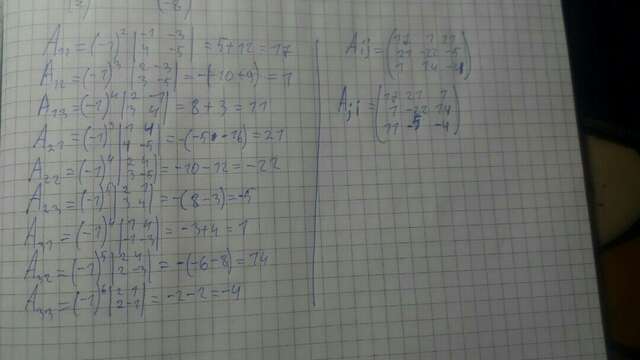 (-8)
A₁₁ = (-1)² | -1 -3 ; 4 -5 | = 5+12 = 17
A₁₂ = (-1)³ | 2 -3 ; 3 -5 | = -(-10+9) = 1
A₁₃ = (-1)⁴ | 2 -1 ; 3 4 | = 8+3 = 11
A₂₁ = (-1)³ | 1 4 ; 4 -5 | = -(-5 -16) = 21
A₂₂ = (-1)⁴ | 2 4 ; 3 -5 | = -10-12 = -22
A₂₃ = (-1)⁵ | 2 1 ; 3 4 | = -(8-3) = -5
A₃₁ = (-1)⁴ | 1 4 ; -1 -3 | = -3+4 = 1
A₃₂ = (-1)⁵ | 2 4 ; 2 -3 | = -(-6-8) = 14
A₃₃ = (-1)⁶ | 2 1 ; 2 -1 | = -2-2 = -4
Aij = ( 17 1 11 ; 21 -22 -5 ; 1 14 -4 )
Aji = ( 17 21 1 ; 1 -22 14 ; 11 -5 -4 )